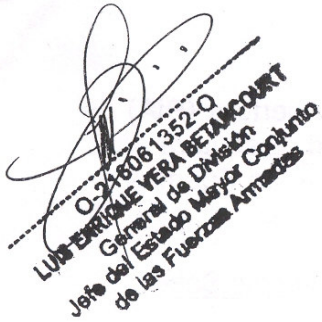 O-2-6061352-Q
LUIS ENRIQUE VERA BETANCOURT
General de División
Jefe del Estado Mayor Conjunto
de las Fuerzas Armadas